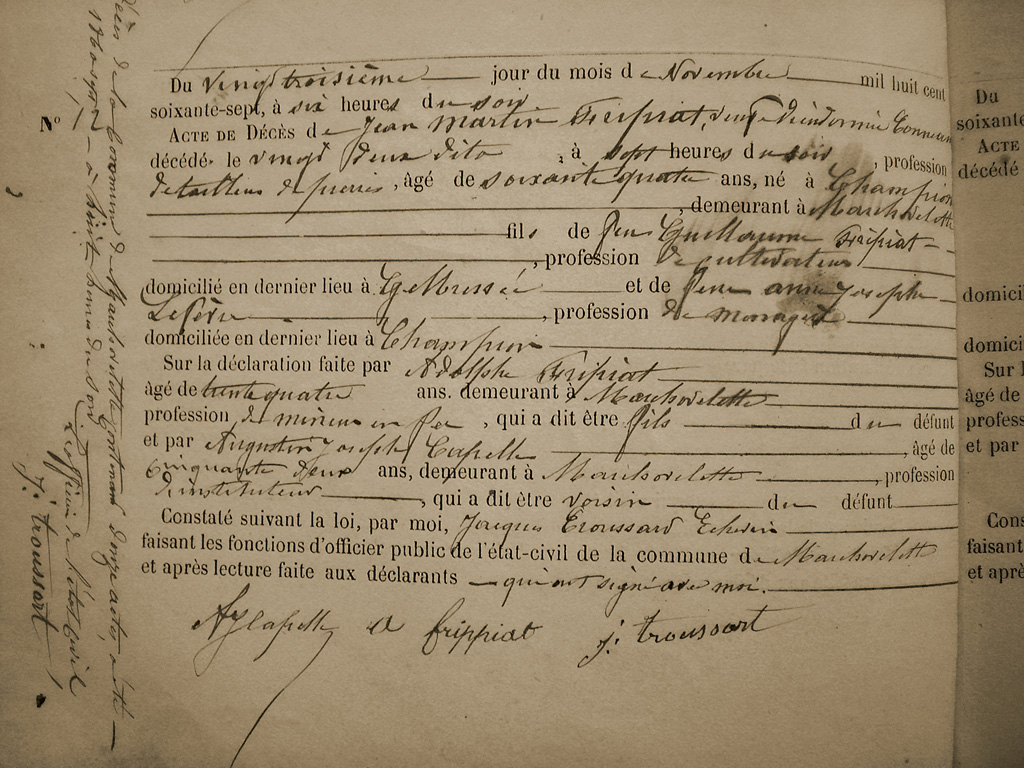 Du vingt troisième jour du mois de Novembre mil huit cent
soixante-sept, à six heures du soir
N° 12
ACTE DE DÉCÈS de Jean Martin Fripiat, veuf d'
décédé le vingt deux dito, à sept heures du soir, profession
de tailleur de pierres, âgé de soixante quatre ans, né à Champion
, demeurant à Marchovelette
fils de feu Guillaume Fripiat
, profession de cultivateur
domicilié en dernier lieu à et de feue anne Joseph
, profession de menagère
domiciliée en dernier lieu à Champion
Sur la déclaration faite par Adolphe Fripiat
âgé de trente quatre ans. demeurant à Marchovelette
profession de mineur en fer, qui a dit être fils du défunt
et par Augustin Joseph Capelle, âgé de
cinquante deux ans, demeurant à Marchovelette, profession
d'instituteur, qui a dit être voisin du défunt
Constaté suivant la loi, par moi, Jacques Troussard Echevin
faisant les fonctions d'officier public de l'état-civil de la commune de Marchovelette
et après lecture faite aux déclarants qui ont signé avec moi.
AJ Capelle A frippiat j: troussart
de la commune de Marchovelette contenant douze actes, a été
L'officier de l'état civil
j: troussart
Du
soixante
ACTE
décédé
domici
domici
Sur l
âgé de
profess
et par
Cons
faisant
et aprè